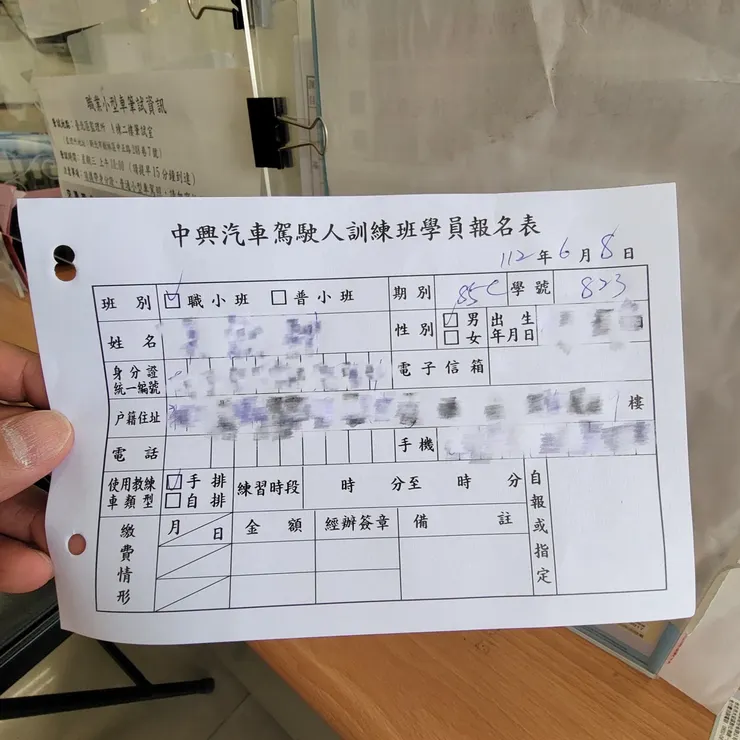 職業小型車筆試資訊
中興汽車駕駛人訓練班學員報名表
112年6月8日
班別 ☑職小班 □普小班 期別 85C 學號 823
姓名 性別 ☑男 □女 出生年月日
身分證統一編號 電子信箱
戶籍住址 樓
電話 手機
使用教練車類型 ☑手排 □自排 練習時段 時 分至 時 分 自報或指定
繳費情形 月 日 金額 經辦簽章 備註